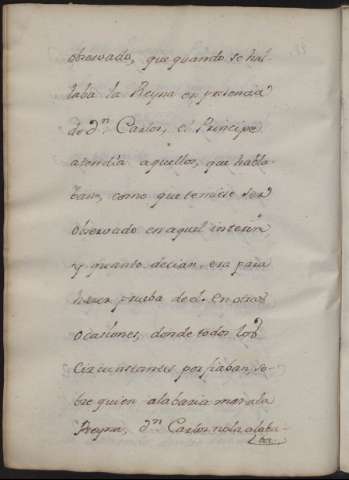 obsevado, que quando se hal
laba la Reyna en presencia
de Dn Carlos, el Principe
atendia aquellos, que habla
ban, como que temiese ser
observado en aquel interin
y quanto decian, era para
hacer prueba de el. en otras
ocasiones, donde todos los
circunstantes porfiaban so-
bre quien alabaria mas ala
Reyna, Dn Carlos nola alaba-
ba